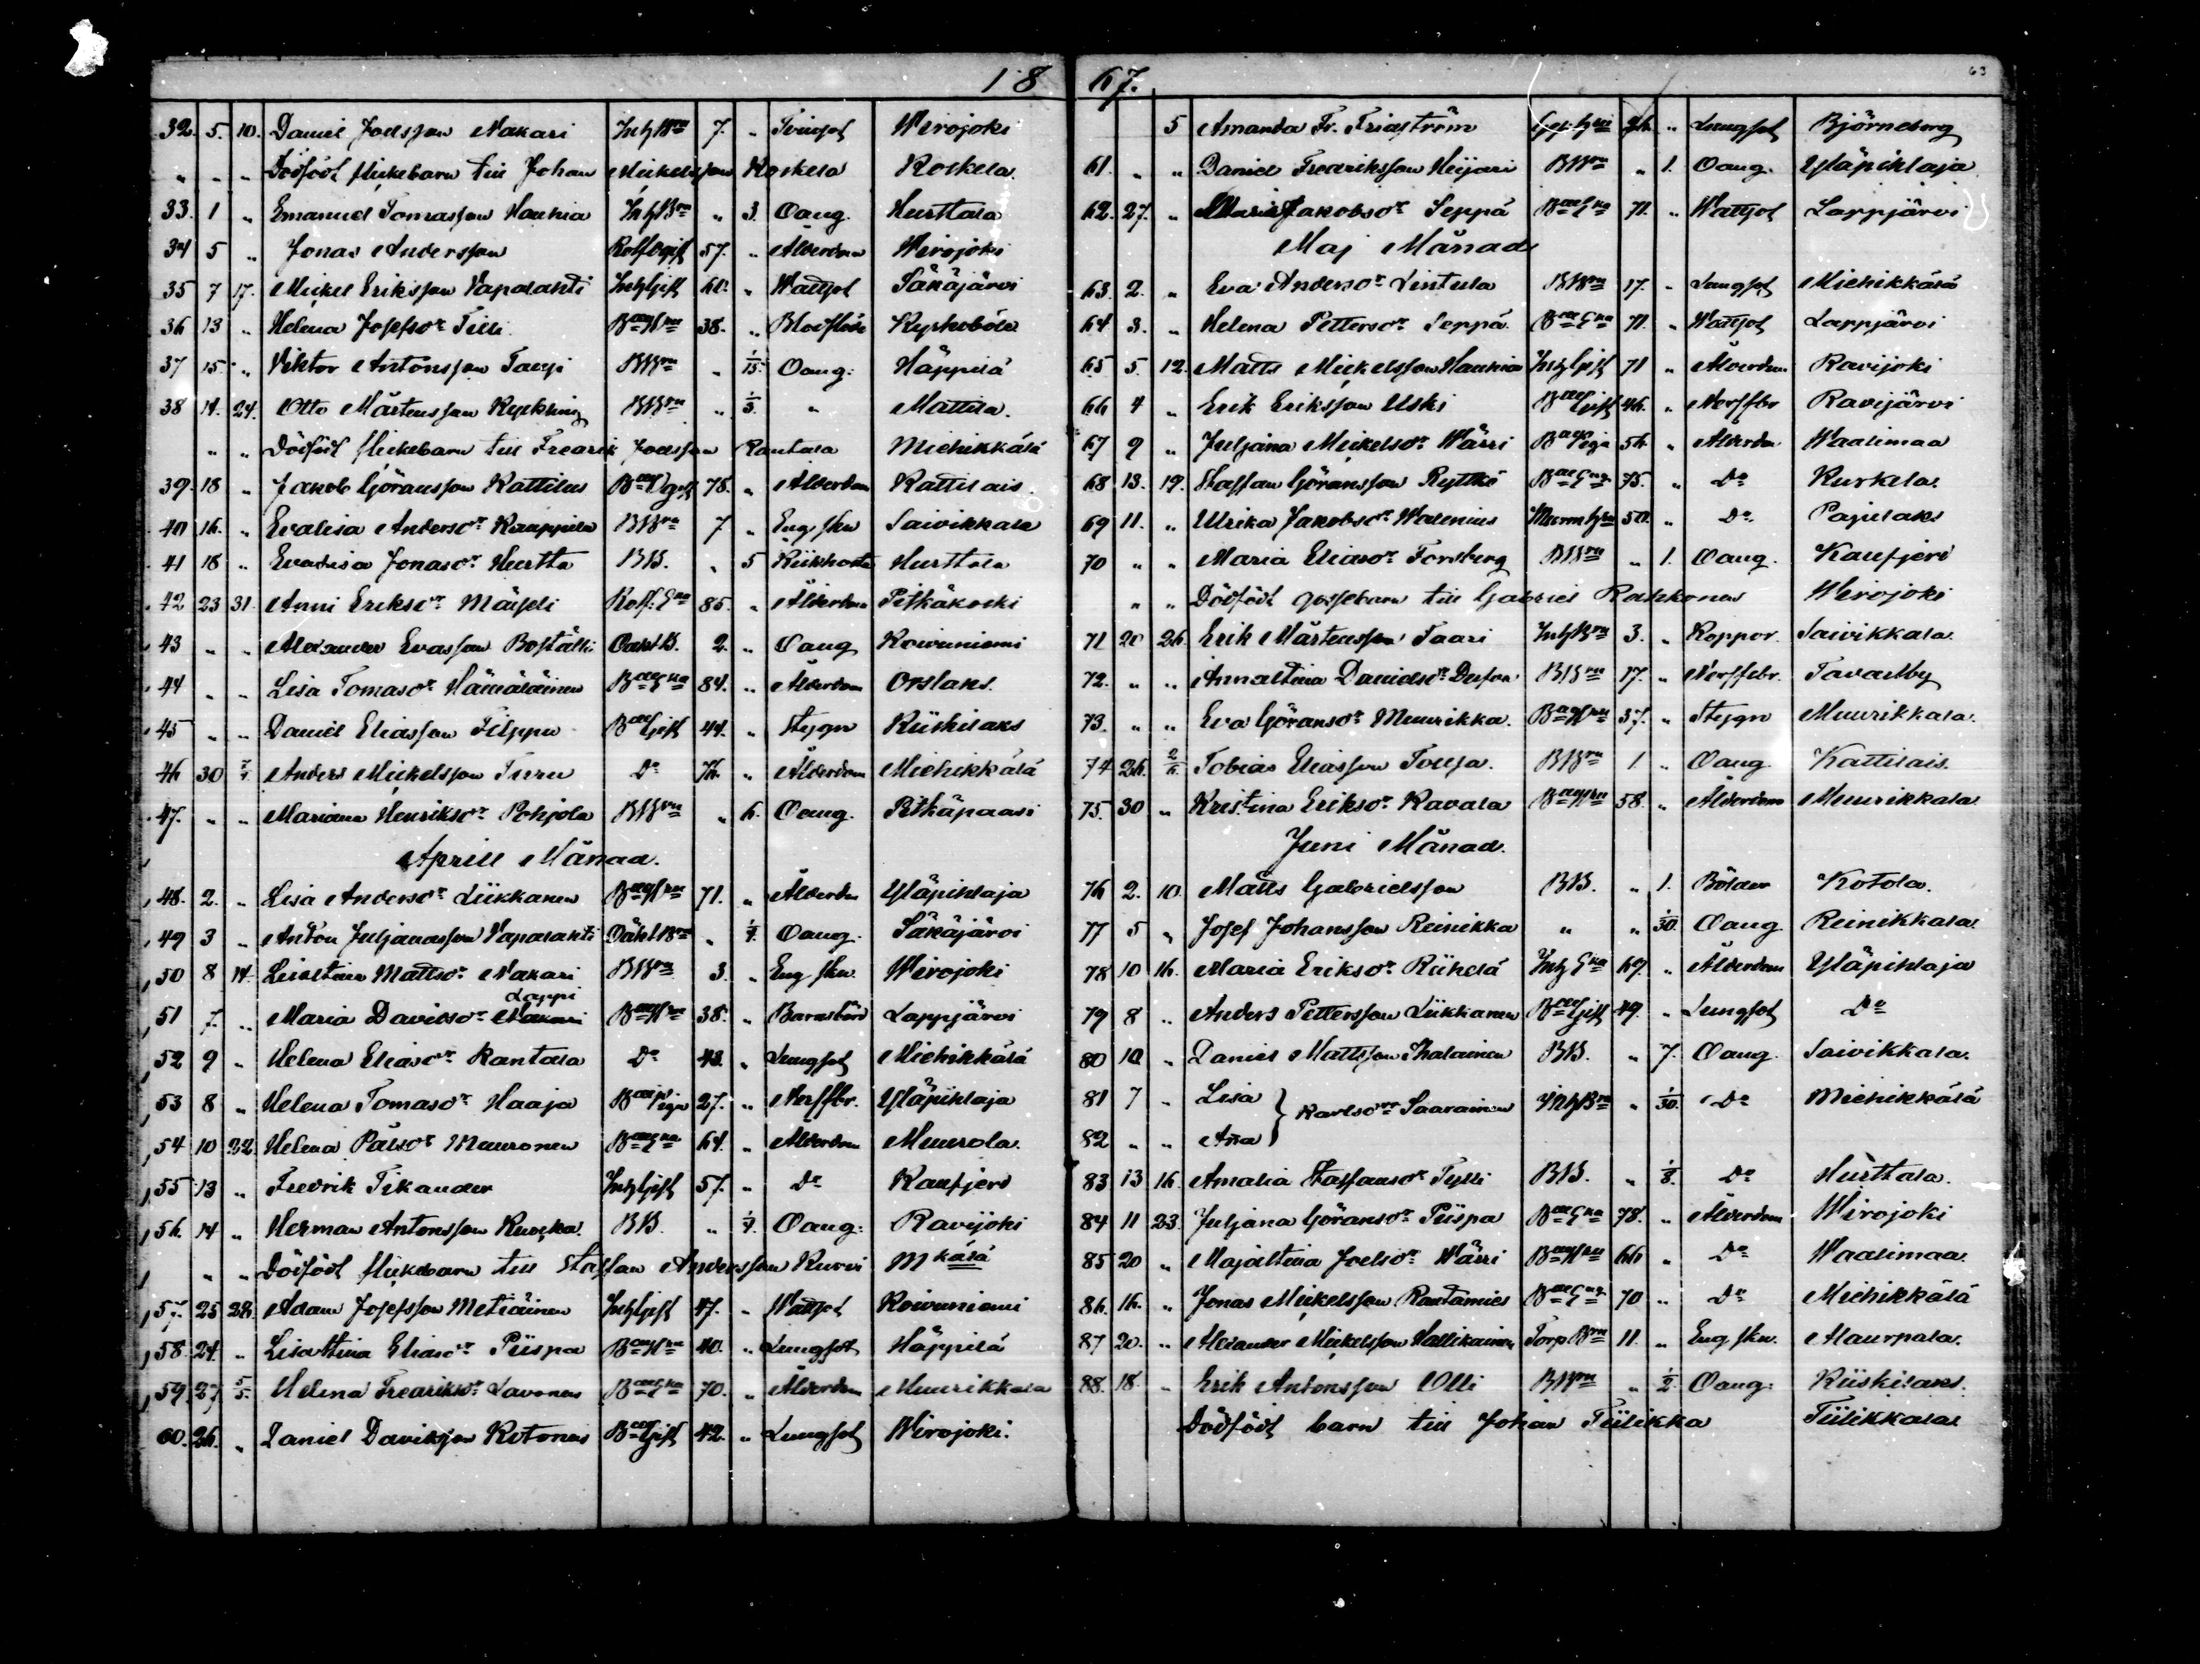 18
32. 5. 10. Daniel Joelsson Nakari Inh Brn 7. " Tvinsot Wirojoki
" " " Dödfödt flickebarn till Johan Mickelsson Koskela Koskela
33. 1 " Emanuel Tomasson Haukia Inh Brn " 3. Oang. Hurttala
34 5 " Jonas Andersson 57. " Ålderdom Wirojoki
35 7 17. Mickel Eriksson Vapalahti Inh Gift 60. " Wattsot Säkäjärvi
36 13 " Helena Josefsdr Tilli 38. " Blodflöde
37 15 " Viktor Antonsson BBrn " 1/15 Oang. Häppilä
38 14. 24. Otto Mårtensson Ryckling BBrn " 1/3. " Mattila.
" " Dödfödt flickebarn till Fredrik Joelsson Rantala Miehikkälä
39. 18 " Jakob Göransson Kattilus 78. " Ålderdom Kattilais.
40 16. " Evalisa Andersdr Kauppila BBrn 7 " Eng skn Saivikkala
41 18 " Evalisa Jonasdr Hurtta BB. " 5 Kikhosta Hurttala
42 23 31. Anni Eriksdr Mäyseli 85. " Ålderdom Pitkäkoski
43 " " Alexander Evasson 2. " Oang Koivuniemi
44 " " Lisa Tomasdr Hämäläinen 84. " Ålderdom Orslaks.
45 " " Daniel Eliasson Filppu Gift 44. " Stygn Kiiskilaks
46 30 7/4. Anders Mickelsson Turru Do 76. " Ålderdom Miehikkälä
47. " " Mariana Henriksdr Pohjola BBrn " 6. Oang. Pitkäpaasi
April Månad.
48. 2. " Lisa Andersdr Liikkanen 71. " Ålderdm Yläpihlaja
49 3 " Anton Juljanasson Vapalahti " 1/4. Oang. Säkäjärvi
50 8 14. Lisastina Mattsdr Nakari BBrn 3. " Eng skn. Wirojoki
Lappi
51 7. " Maria Davidsdr Nakari 38. " Barnsbörd Lappjärvi
52 9 " Helena Eliasdr Rantala Do 43. " Lungsot Miehikkälä
53 8 " Helena Tomasdr Haaja 27. " Nerffbr. Yläpihlaja
54 10 22. Helena Pålsdr Muuronen 64. " Ålderdom Muurola.
55 13 " Fredrik Tikander Inh Gift 57. " Do Kaufjerd
56. 14 " Herman Antonsson Ruoska. BB. " 1/4. Oang. Ravijoki
" " Dödfödt flickebarn till Staffan Andersson Kurvi Mkälä
57. 25 28. Adam Josefsson Metiäinen Inh Gift 47. " Wattsot Koivuniemi
58. 24. " Lisastina Eliasdr Piispa 40. " Lungsot Häppilä
59. 27 5/5. Helena Fredriksdr Lavonen 70. " Ålderdom Muurikkala
60. 26. " Daniel Davidsson Kotonen Gift 42. " Lungsot Wirojoki.
67.
63
5 Amanda Fr. Friaström " Lungsot Björneborg
61. " " Daniel Fredriksson Heijari BBrn " 1. Oang. Yläpihlaja
62. 27. " Maria Jakobsdr Seppä 71. " Wattsot Lappjärvi
Maj Månad
63. 2. " Eva Andersdr Lintula BBrn 17. " Lungsot Miehikkälä
64 3. " Helena Pettersdr Seppä. 71. " Wattsot Lappjärvi
65 5. 12. Matts Mickelsson Haukia Inh Gift 71 " Ålderdm Ravijoki
66 4 " Erik Eriksson Uski Gift 46. " Nerffbr Ravijärvi
67 9 " Juljana Mickelsdr Wärri Piga 56. " Ålderdm Waalimaa
68 13. 19. Staffan Göransson Ryttkö 75. " Do Kurkela.
69 11. " Ulrika Jakobsdr Walenius 50. " Do. Papilaks
70 " " Maria Eliasdr Forsberg BBrn " 1. Oang. Kaufjerd
" " Dödfödt gossebarn till Gabriel Rahkonen Wirojoki
71 20 26. Erik Mårtensson Taari Inh Brn 3. " Koppor. Saivikkala.
72. " " Annastina Danielsdr BBrn 17. " Nerffebr. Tavastby
73. " " Eva Göransdr Muurikka. 37. " Stygn Muurikkala.
74 26. 2/6. Tobias Eliasson Touja. BBrn 1 " Oang. Kattilais.
75. 30 " Kristina Eriksdr Kavala 58. " Ålderdom Muurikkala.
Juni Månad.
76 2. 10. Matts Gabrielsson BB. " 1. Bölder Kotola.
77 5 " Josef Johansson Reinikka " " 1/30. Oang Reinikkala.
78 10 16. Maria Eriksdr Riihelä Inh 69. " Ålderdom Yläpihlaja
79 8 " Anders Pettersson Liikkanen Gift 49. " Lungsot Do
80 10. " Daniel Mattsson Ihalainen BB. " 7. Oang. Saivikkala.
81 7 " Lisa } Karlsdr Saarainen Inh Brn " 1/30. Do Miehikkälä
82 " " Ana
83 13 16. Amalia Staffansdr Tylli BB. " 1/8. Do Hurttala.
84 11 23. Juljana Göransdr Piispa 78. " Ålderdom Wirojoki
85 20 " Majastina Joelsdr Wärri 66 " Do Waalimaa.
86. 16. " Jonas Mickelsson Rautamies 70 " Do Miehikkälä
87 20. " Alexander Mickelsson Hallikainen Torp Brn 11. " Eng skn. Maurpala.
88. 18. " Erik Antonsson Olli BBrn " 1/2. Oang. Kiiskilaks.
Dödfödt barn till Johan Tiilikka Tiilikkala